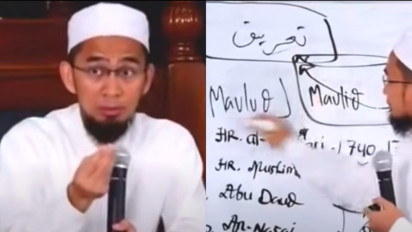 تعريف
Mavlud Mavlid
HR. al- ri - 1740, 17
HR. Muslim
Abu Daud
An-Nasai